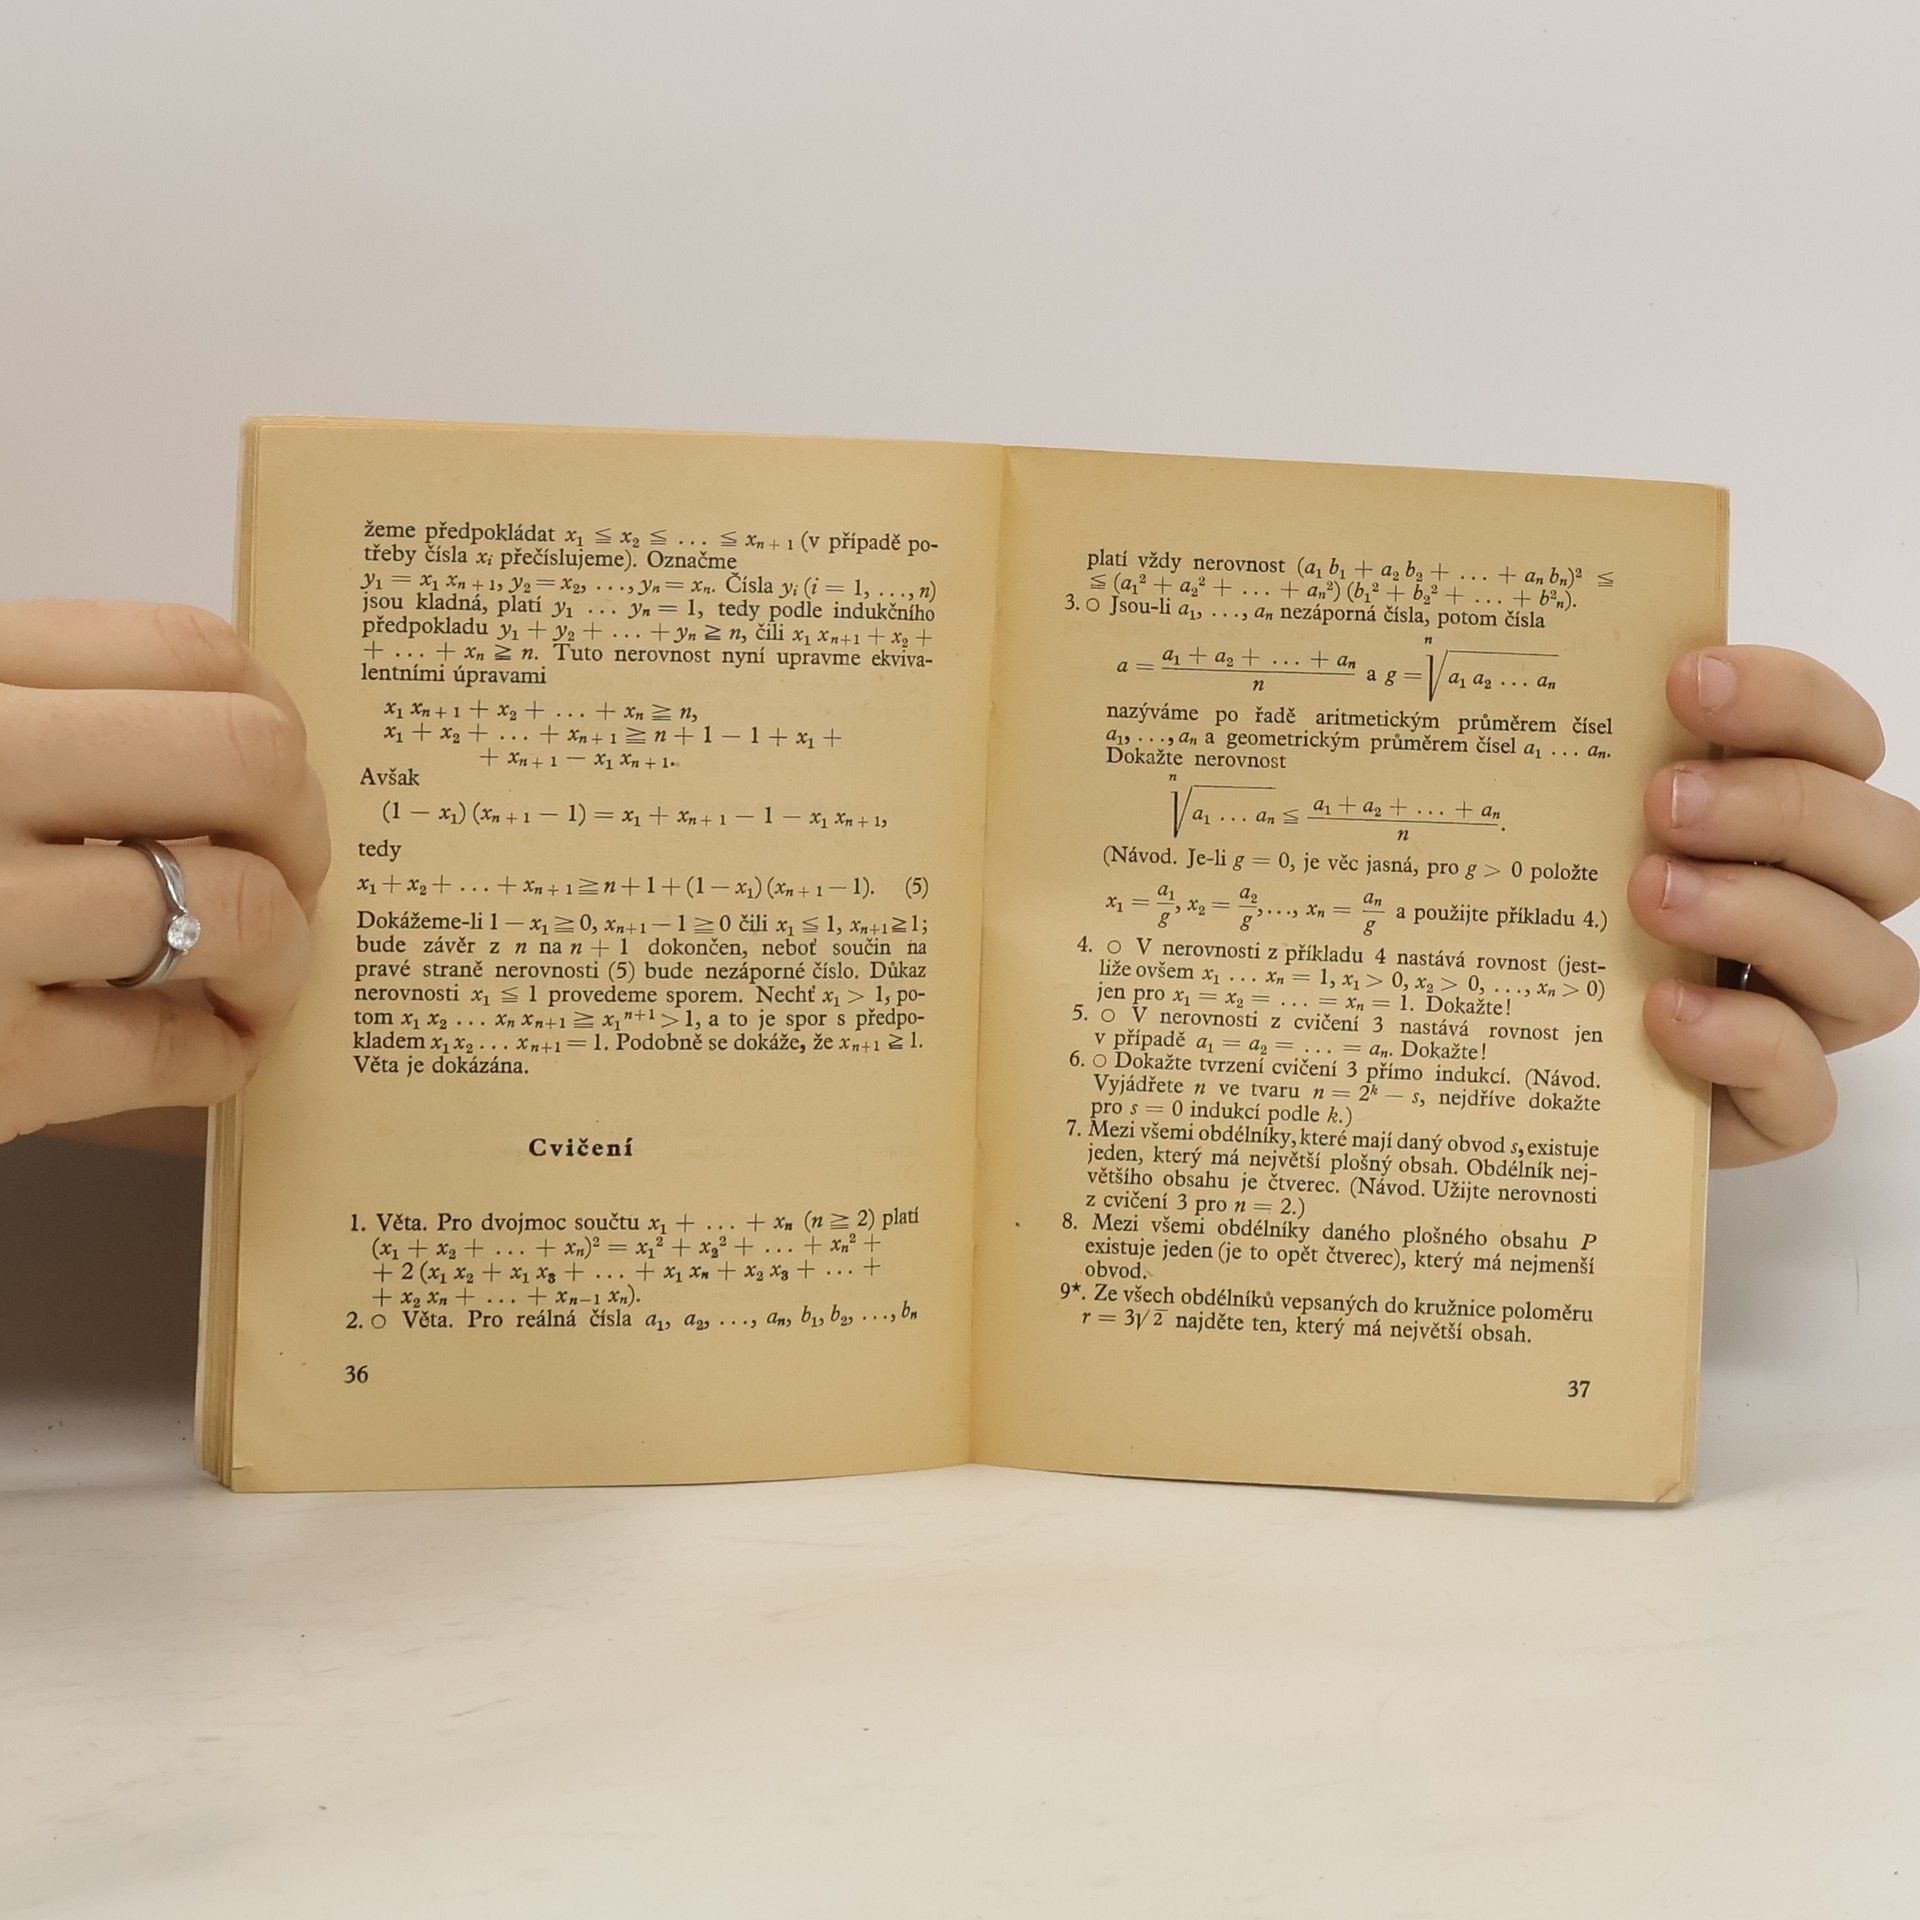 žeme předpokládat x₁ ≦ x₂ ≦ ... ≦ xₙ₊₁ (v případě po-
třeby čísla xᵢ přečíslujeme). Označme
y₁ = x₁ xₙ₊₁, y₂ = x₂, ..., yₙ = xₙ. Čísla yᵢ (i = 1, ..., n)
jsou kladná, platí y₁ ... yₙ = 1, tedy podle indukčního
předpokladu y₁ + y₂ + ... + yₙ ≧ n, čili x₁ xₙ₊₁ + x₂ +
+ ... + xₙ ≧ n. Tuto nerovnost nyní upravme ekviva-
lentními úpravami
x₁ xₙ₊₁ + x₂ + ... + xₙ ≧ n,
x₁ + x₂ + ... + xₙ₊₁ ≧ n + 1 − 1 + x₁ +
+ xₙ₊₁ − x₁ xₙ₊₁.
Avšak
(1 − x₁) (xₙ₊₁ − 1) = x₁ + xₙ₊₁ − 1 − x₁ xₙ₊₁,
tedy
x₁ + x₂ + ... + xₙ₊₁ ≧ n + 1 + (1 − x₁) (xₙ₊₁ − 1). (5)
Dokážeme-li 1 − x₁ ≧ 0, xₙ₊₁ − 1 ≧ 0 čili x₁ ≦ 1, xₙ₊₁ ≧ 1;
bude závěr z n na n + 1 dokončen, neboť součin na
pravé straně nerovnosti (5) bude nezáporné číslo. Důkaz
nerovnosti x₁ ≦ 1 provedeme sporem. Nechť x₁ > 1, po-
tom x₁ x₂ ... xₙ xₙ₊₁ ≧ x₁ⁿ⁺¹ > 1, a to je spor s předpo-
kladem x₁ x₂ ... xₙ₊₁ = 1. Podobně se dokáže, že xₙ₊₁ ≧ 1.
Věta je dokázána.
Cvičení
1. Věta. Pro dvojmoc součtu x₁ + ... + xₙ (n ≧ 2) platí
(x₁ + x₂ + ... + xₙ)² = x₁² + x₂² + ... + xₙ² +
+ 2 (x₁ x₂ + x₁ x₃ + ... + x₁ xₙ + x₂ x₃ + ... +
+ x₂ xₙ + ... + xₙ₋₁ xₙ).
2. ○ Věta. Pro reálná čísla a₁, a₂, ..., aₙ, b₁, b₂, ..., bₙ
36
platí vždy nerovnost (a₁ b₁ + a₂ b₂ + ... + aₙ bₙ)² ≦
≦ (a₁² + a₂² + ... + aₙ²) (b₁² + b₂² + ... + b²ₙ).
3. ○ Jsou-li a₁, ..., aₙ nezáporná čísla, potom čísla
a = (a₁ + a₂ + ... + aₙ)/n a g = ⁿ√(a₁ a₂ ... aₙ)
nazýváme po řadě aritmetickým průměrem čísel
a₁, ..., aₙ a geometrickým průměrem čísel a₁ ... aₙ.
Dokažte nerovnost
ⁿ√(a₁ ... aₙ) ≦ (a₁ + a₂ + ... + aₙ)/n.
(Návod. Je-li g = 0, je věc jasná, pro g > 0 položte
x₁ = a₁/g, x₂ = a₂/g, ..., xₙ = aₙ/g a použijte příkladu 4.)
4. ○ V nerovnosti z příkladu 4 nastává rovnost (jest-
liže ovšem x₁ ... xₙ = 1, x₁ > 0, x₂ > 0, ..., xₙ > 0)
jen pro x₁ = x₂ = ... = xₙ = 1. Dokažte!
5. ○ V nerovnosti z cvičení 3 nastává rovnost jen
v případě a₁ = a₂ = ... = aₙ. Dokažte!
6. ○ Dokažte tvrzení cvičení 3 přímo indukcí. (Návod.
Vyjádřete n ve tvaru n = 2ᵏ − s, nejdříve dokažte
pro s = 0 indukcí podle k.)
7. Mezi všemi obdélníky, které mají daný obvod s, existuje
jeden, který má největší plošný obsah. Obdélník nej-
většího obsahu je čtverec. (Návod. Užijte nerovnosti
z cvičení 3 pro n = 2.)
8. Mezi všemi obdélníky daného plošného obsahu P
existuje jeden (je to opět čtverec), který má nejmenší
obvod.
9*. Ze všech obdélníků vepsaných do kružnice poloměru
r = 3√2 najděte ten, který má největší obsah.
37